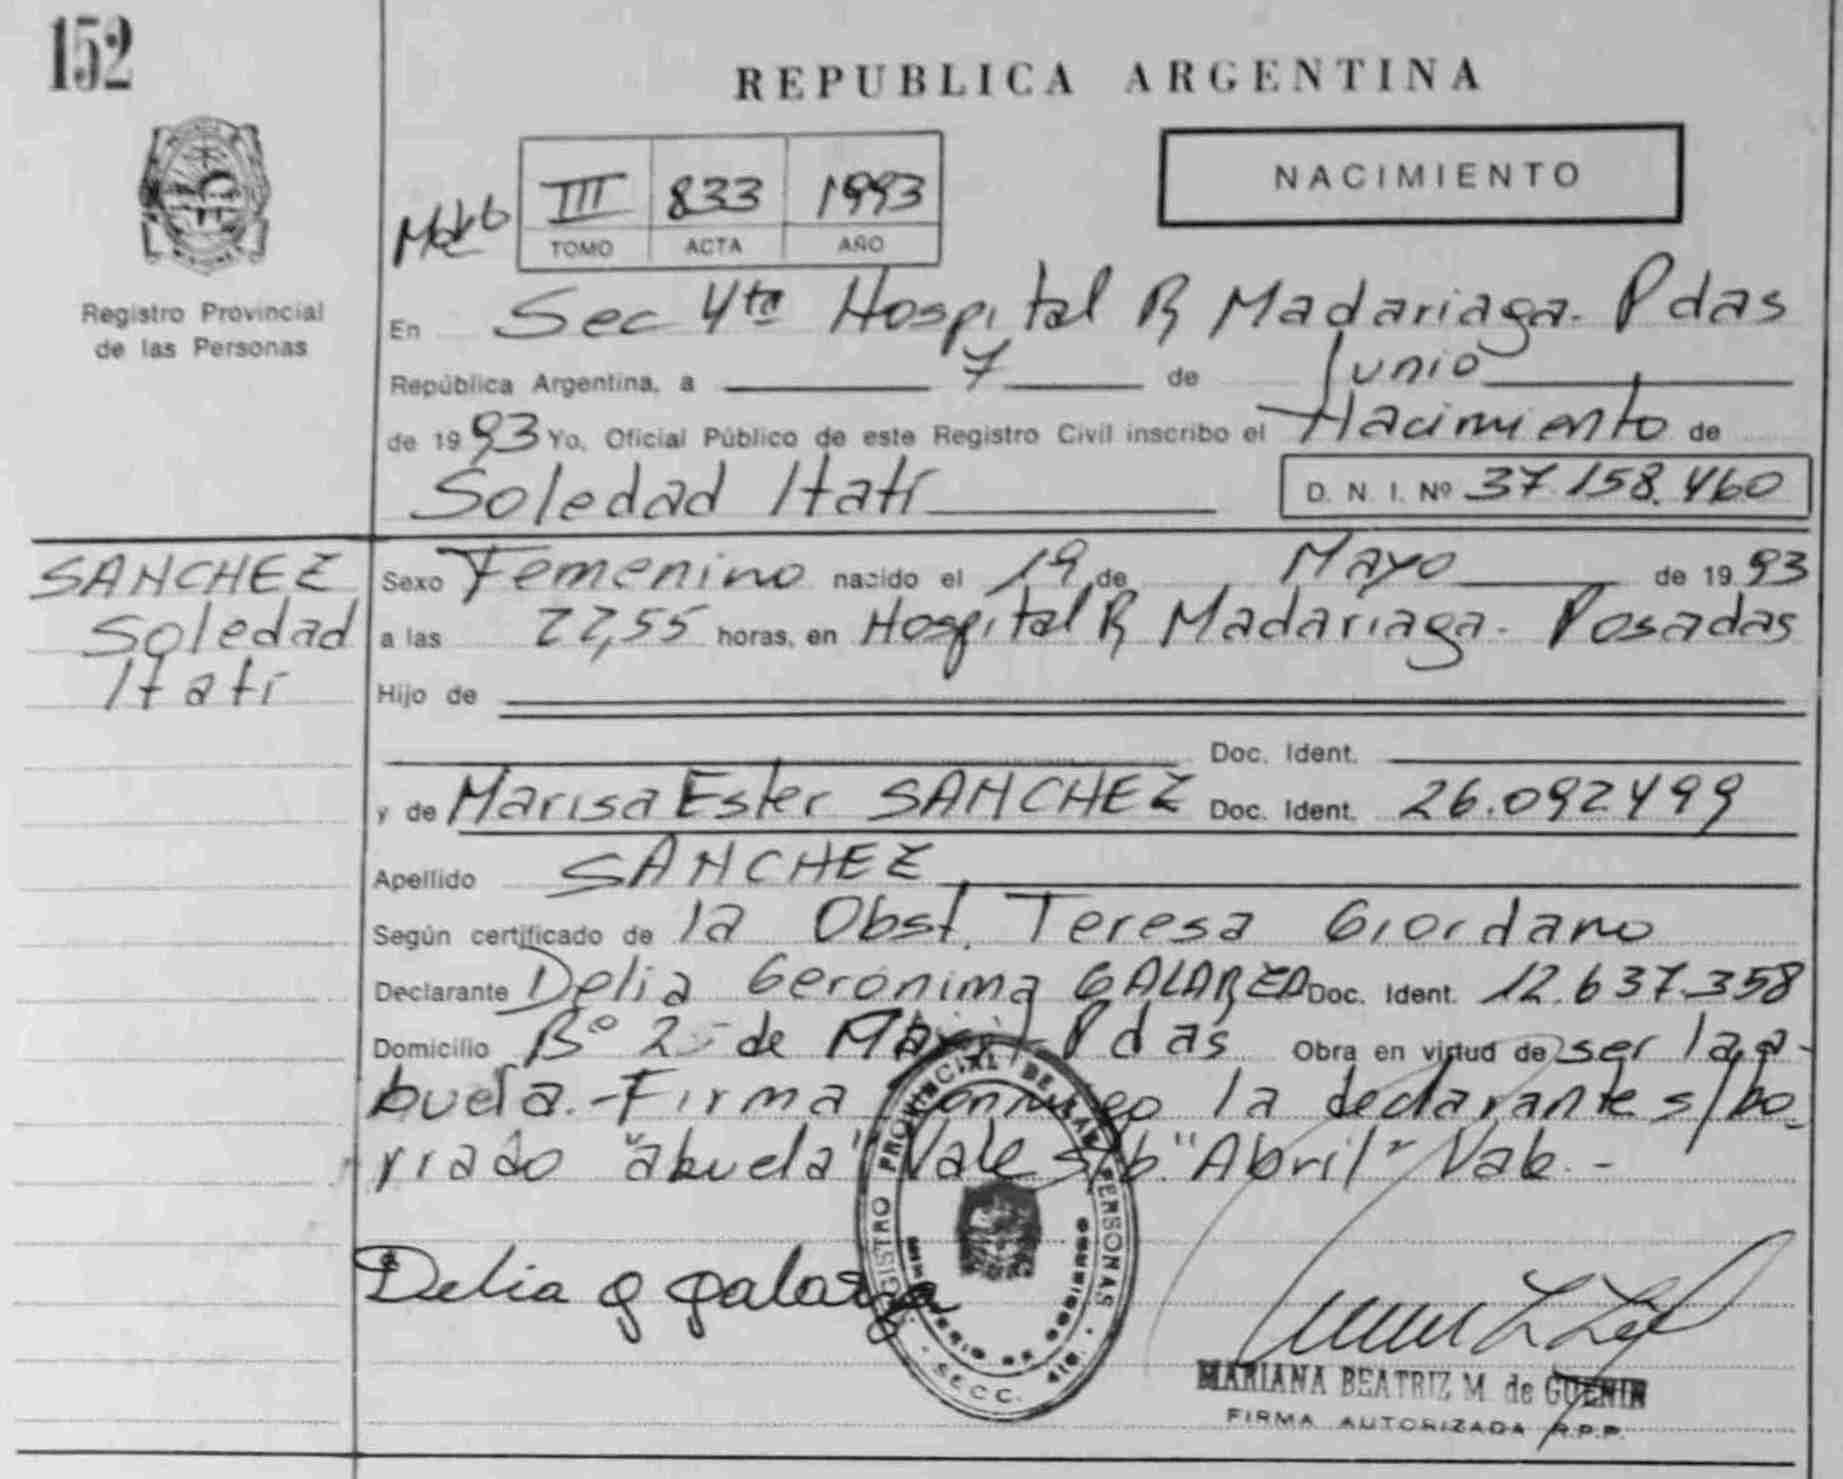 152
REPUBLICA ARGENTINA
NACIMIENTO
III 833 1993
TOMO ACTA AÑO
Registro Provincial
de las Personas
En Sec 4ta Hospital R Madariaga - Pdas
República Argentina, a 7 de Junio
de 1993 Yo, Oficial Público de este Registro Civil inscribo el Nacimiento de
Soledad Itatí D. N. I. Nº 37.158.460
SANCHEZ
Soledad
Itatí
Sexo Femenino nacido el 19 de Mayo de 1993
a las 22,55 horas, en Hospital R Madariaga - Posadas
Hijo de
Doc. Ident.
y de Marisa Ester SANCHEZ Doc. Ident. 26.092499
Apellido SANCHEZ
Según certificado de la Obst. Teresa Giordano
Declarante Delia Gerónima GALARZA Doc. Ident. 12.637.358
Domicilio Bº 2 de Abril - Pdas Obra en virtud de ser la a-
buela.- Firma conmigo la declarante s/bo-
rrado "abuela" Vale s/b. "Abril" Vale.-
Delia G Galarza
REGISTRO PROVINCIAL DE LAS PERSONAS
SECC. 4ta.
MARIANA BEATRIZ M. de GUENIN
FIRMA AUTORIZADA R.P.P.